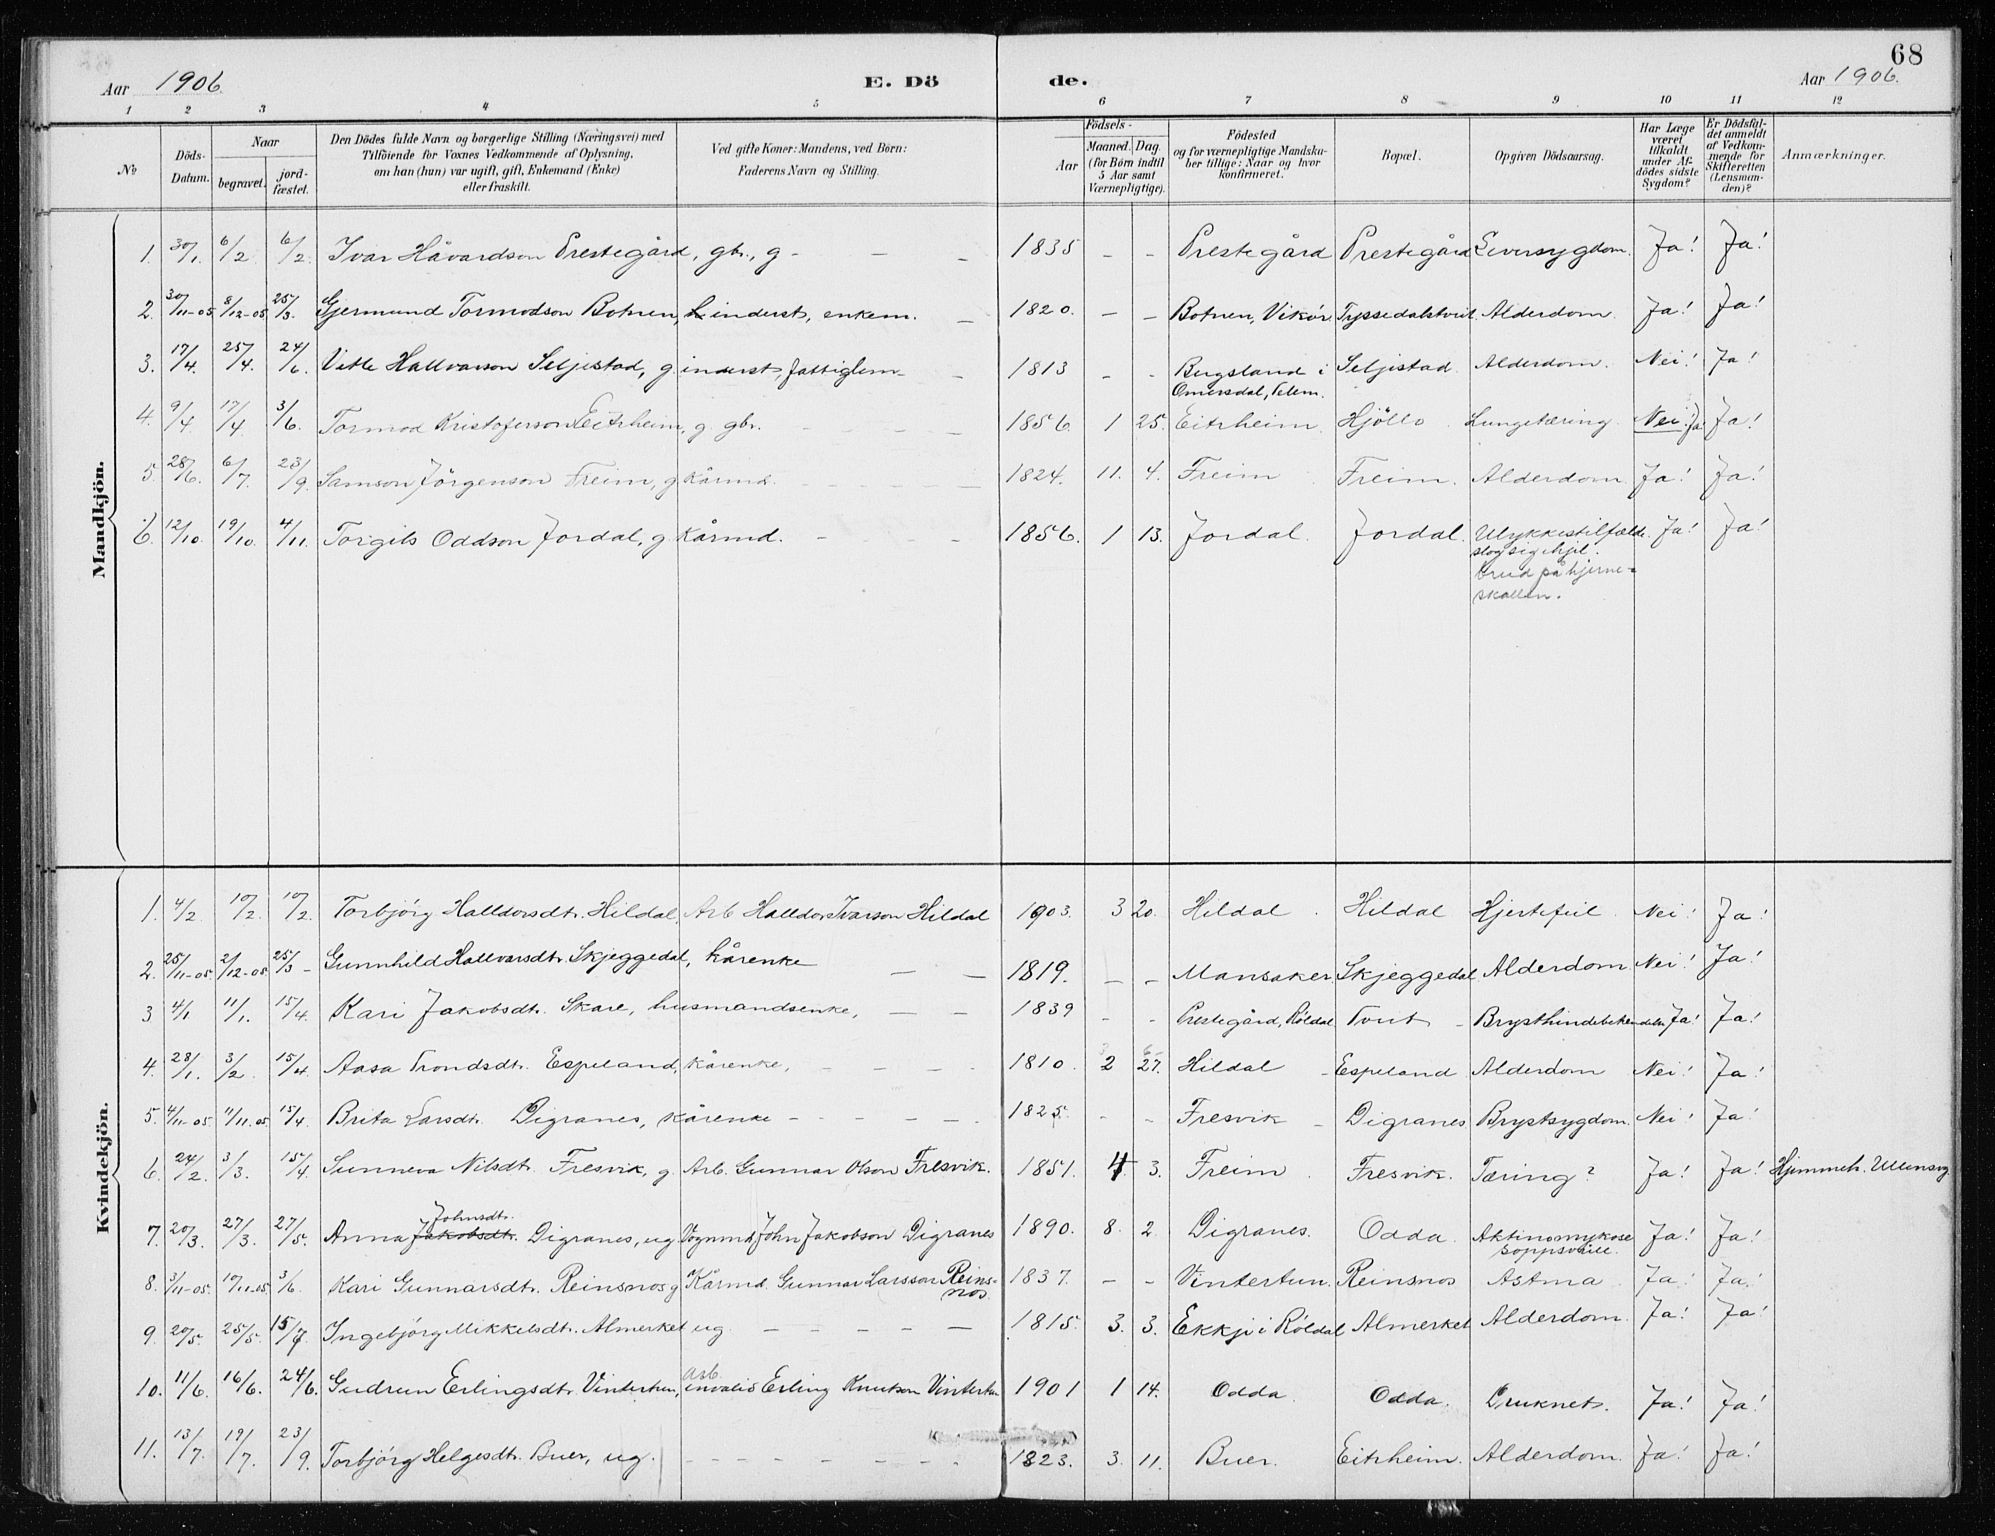 68
Aar 1906. E. Dö de. Aar 1906.
1 2 3 4 5 6 7 8 9 10 11 12
No Döds-Datum. Naar begravet. jord-fæstet. Den Dödes fulde Navn og borgerlige Stilling (Næringsvei) med Tilföiende for Voxnes Vedkommende af Oplysning, om han (hun) var ugift, gift, Enkemand (Enke) eller fraskilt. Ved gifte Koner: Mandens, ved Börn: Faderens Navn og Stilling. Födsels- Aar Maaned. Dag (for Börn indtil 5 Aar samt Værnepligtige). Födested og for værnepligtige Mandskaber tillige: Naar og hvor konfirmeret. Bopæl. Opgiven Dödsaarsag. Har Læge været tilkaldt under Afdödes sidste Sygdom? Er Dödsfaldet anmeldt af Vedkommende for Skifteretten (Lensmanden)? Anmærkninger.
Mandkjön.
1. 30/1. 6/2 6/2. Ivar Håvardson Prestegård, gbr., g - - - 1835 - - Prestegård Prestegård Leversygdom. Ja! Ja!
2. 30/11-05 8/12-05 25/3. Gjermund Tormodson Botnen, inderst, enkem. - 1820. - - Botnen, Vikör. Tyssedalstveit. Alderdom. Ja! Ja!
3. 17/4. 25/4. 24/6. Vetle Hallvarson Seljestad, g inderst, fattiglem - - 1813 - - Bergsland i Seljestad. Alderdom. Nei! Ja!
Omersdal, Telem.
4. 9/4 17/4. 3/6. Tormod Kristoferson Eitrheim, g. gbr. - - - - 1856. 1 25. Eitrheim. Hjöllo. Lungetæring. Nei! Ja Ja!
5. 28/6. 6/7. 23/9. Samson Jörgenson Freim, g kårmd. - - - - 1824. 11. 4. Freim Freim. Alderdom. Ja! Ja!
6. 12/10 19/10. 4/11. Torgils Oddson Jordal, g kårmd. - - - 1856. 1 13. Jordal. Jordal. Ulykkestilfælde. Ja! Ja!
slog sig ihjel.
brud på hjerne-
skallen.
Kvindekjön.
1. 4/2 10/2. 10/2. Torbjörg Halldorsdtr. Hildal, Arb Halldor Ivarson Hildal 1903. 3 20. Hildal. Hildal Hjertefeil. Nei! Ja!
2. 25/11-05 2/12-05 25/3 - Gunnhild Hallvarsdtr. Skjeggedal, kårenke - - 1819. - - Mansaker Skjeggedal Alderdom Nei! Ja!
3 4/1 11/1. 15/4. Kari Jakobsdtr. Skare, husmandsenke, - - 1839 - - Prestegård, Röldal Tveit - Brysthindebetændelse Ja! Ja!
4. 28/1. 3/2. 15/4 Aasa Trondsdtr. Espeland, kårenke, - - - - 1810. 2 27. Hildal - Espeland Alderdom Nei! Ja!
5. 4/11-05 11/11.05 15/4. Brita Larsdtr. Digranes, kårenke - - - - - 1825. - - Fresvik - Digranes Brystsygdom. Nei! Ja!
6. 24/2. 3/3. 15/4 Sunneva Nilsdtr. Fresvik, g. Arb. Gunnar Olson Fresvik. 1851. 4. 3. Freim. Fresvik. Tæring? Ja! Ja! Hjemmeh. Ullensvg
Johnsdtr.
7. 20/3. 27/3. 27/5. Anna Jakobsdtr. Digranes, ug. Vognmd John Jakobson Digranes 1890. 8. 2 Digranes. Odda. Aktinomykose Ja! Ja!
8. 3/11-05. 10/11-05 3/6. Kari Gunnarsdtr. Reinsnos g Kårmd. Gunnar Larsson Reins-
nos. 1837. - - Vintertun. Reinsnos Astma. Ja! Ja!
9. 20/5. 25/5. 15/7. Ingebjörg Mikkelsdtr. Almerket ug - - - - - 1815. 3. 3. Ekkji i Röldal Almerket Alderdom. Ja! Ja!
Arb.
10. 11/6. 16/6. 24/6. Gudrun Erlingsdtr. Vintertun, invalid Erling Knutson Vintertun 1901 1 14. Odda. Odda. Druknet. Ja! Ja!
11. 13/7. 19/7. 23/9. Torbjörg Helgesdtr. Buer, ug. - - - - - - - 1823. 3. 11. Buer. Eitrheim. Alderdom. Ja! Ja!